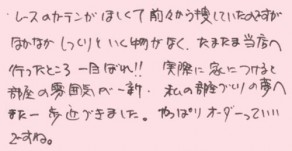 レースのカーテンがほしくて前々から捜していたのですが
なかなかしっくりといく物がなく、たまたま当店へ
行ったところ一目ぼれ!! 実際に家につけると
部屋の雰囲気が一新。私の部屋づくりの夢へ
また一歩近づきました。やっぱりオーダーっていい
ですね。